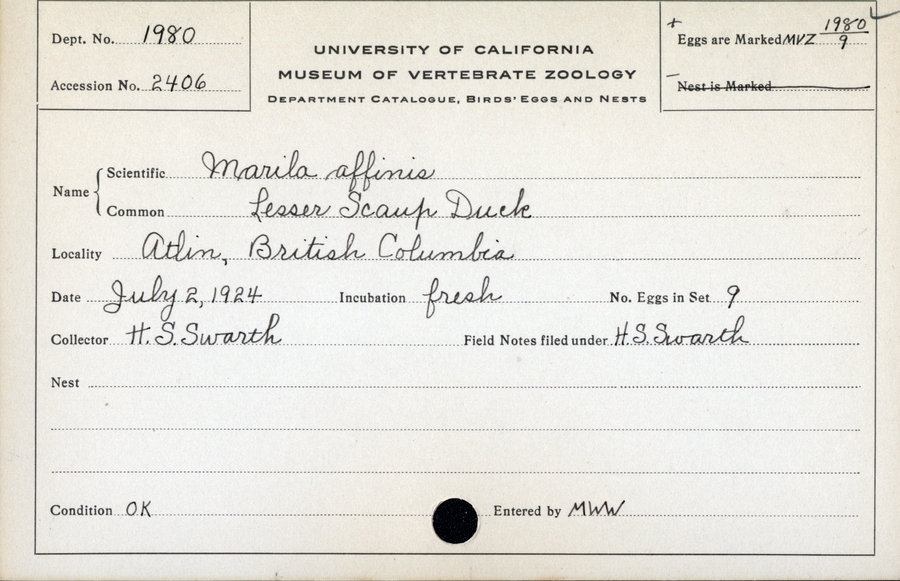 Dept. No. 1980
Accession No. 2406
UNIVERSITY OF CALIFORNIA
MUSEUM OF VERTEBRATE ZOOLOGY
DEPARTMENT CATALOGUE, BIRDS' EGGS AND NESTS
+
Eggs are Marked MVZ 1980/9
– Nest is Marked
Name { Scientific Marila affinis
Common Lesser Scaup Duck
Locality Atlin, British Columbia
Date July 2, 1924 Incubation fresh No. Eggs in Set 9
Collector H. S. Swarth Field Notes filed under H. S. Swarth
Nest
Condition OK Entered by MWW